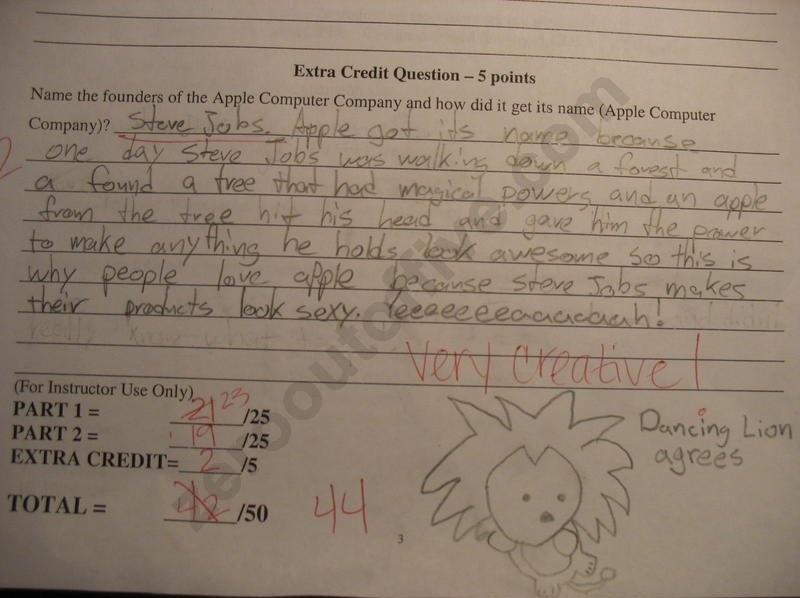 Extra Credit Question – 5 points
Name the founders of the Apple Computer Company and how did it get its name (Apple Computer
Company)? Steve Jobs. Apple got its name because
2 one day Steve Jobs was walking down a forest and
a found a tree that had magical powers and an apple
from the tree hit his head and gave him the power
to make anything he holds look awesome so this is
why people love apple because Steve Jobs makes
their products look sexy. Yeeeeeeeeaaaaaaah!
really know what
Very creative!
(For Instructor Use Only)
PART 1 = 21 23 /25
PART 2 = 19 /25
EXTRA CREDIT= 2 /5
TOTAL = 42 /50 44
Dancing Lion
agrees
3
zerooutoffive.com